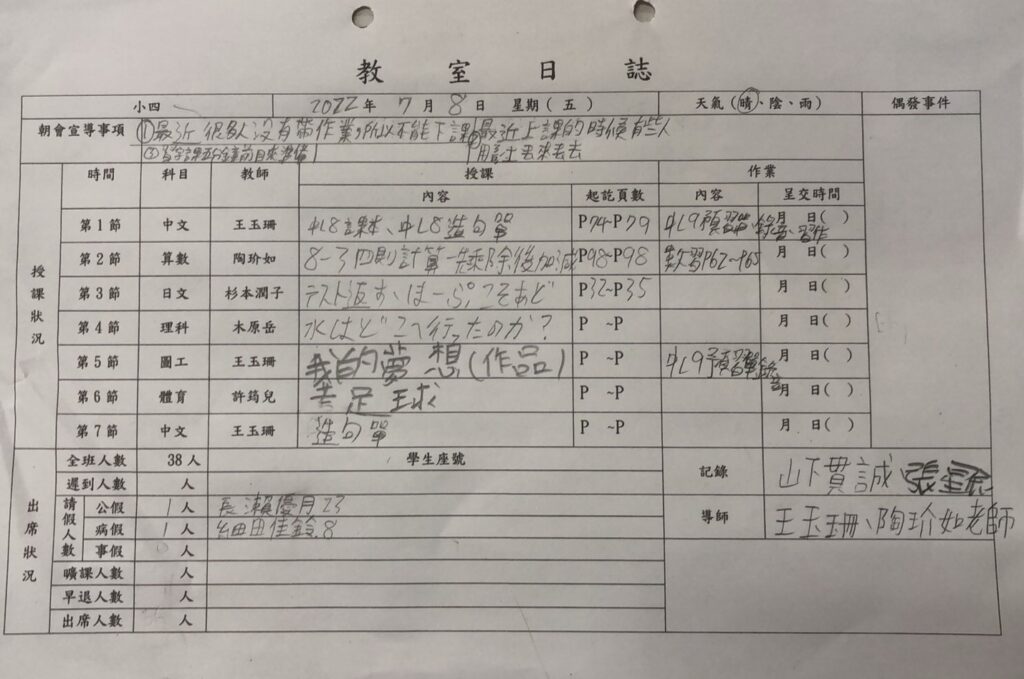 教室日誌
小四 2022年 7月 8日 星期(五) 天氣(晴、陰、雨) 偶發事件
朝會宣導事項 ①最近很多人沒有帶作業,所以不能下課 最近上課的時候有些人
授課狀況 時間 科目 教師 授課 作業
內容 起訖頁數 內容 呈交時間
第1節 中文 王玉珊 中L8課本、中L8造句單 P74~P79 中L9預習單 月 日( )
第2節 算數 陶玠如 8-3四則計算-先乘除後加減 P98~P98 數習P62~P65 月 日( )
第3節 日文 杉本潤子 テスト返す、ほーぷ,こそあど P32~P35 月 日( )
第4節 理科 木原岳 水はどこへ行ったのか? P ~P 月 日( )
第5節 圖工 王玉珊 我的夢想(作品) P ~P 中L9予預習單 月 日( )
第6節 體育 許筠兒 足球 P ~P 月 日( )
第7節 中文 王玉珊 造句單 P ~P 月 日( )
出席狀況 全班人數 38人 學生座號 記錄 山下貫誠
遲到人數 人
請假人數 公假 1人 長瀨優月23 導師 王玉珊、陶玠如老師
病假 1人 細田佳鈴8
事假 人
曠課人數 人
早退人數 人
出席人數 人